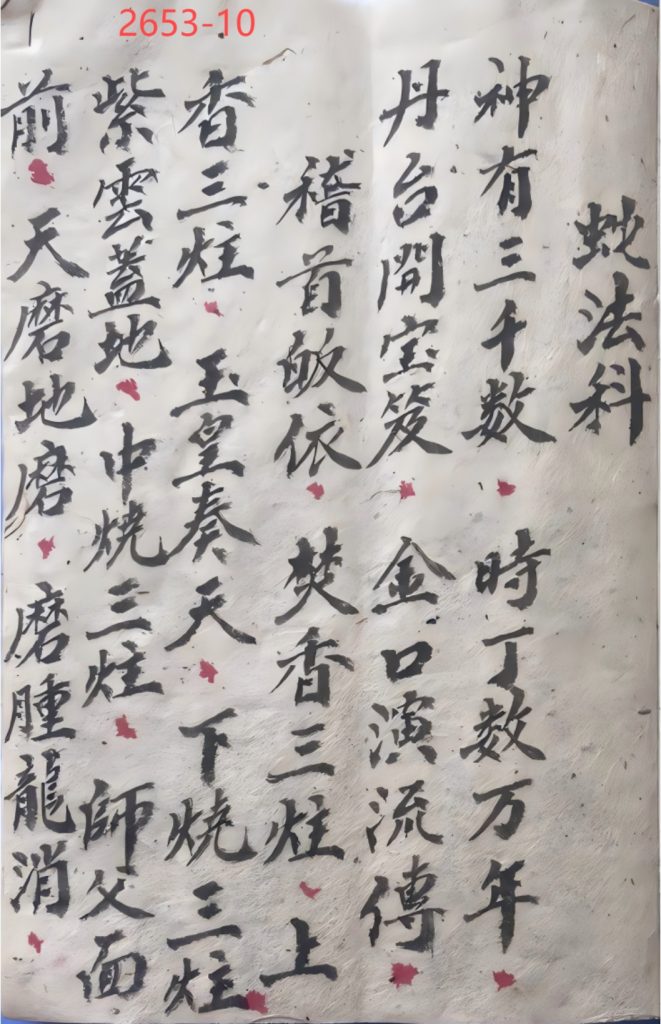 2653-10
虵法科
神有三千数 時丁数万年
丹台開宝笈 金口演流傳
稽首皈依 焚香三炷 上
香三炷 玉皇奏天 下燒三炷
紫雲蓋地 中燒三炷 師父面
前 天磨地磨 磨腫龍消